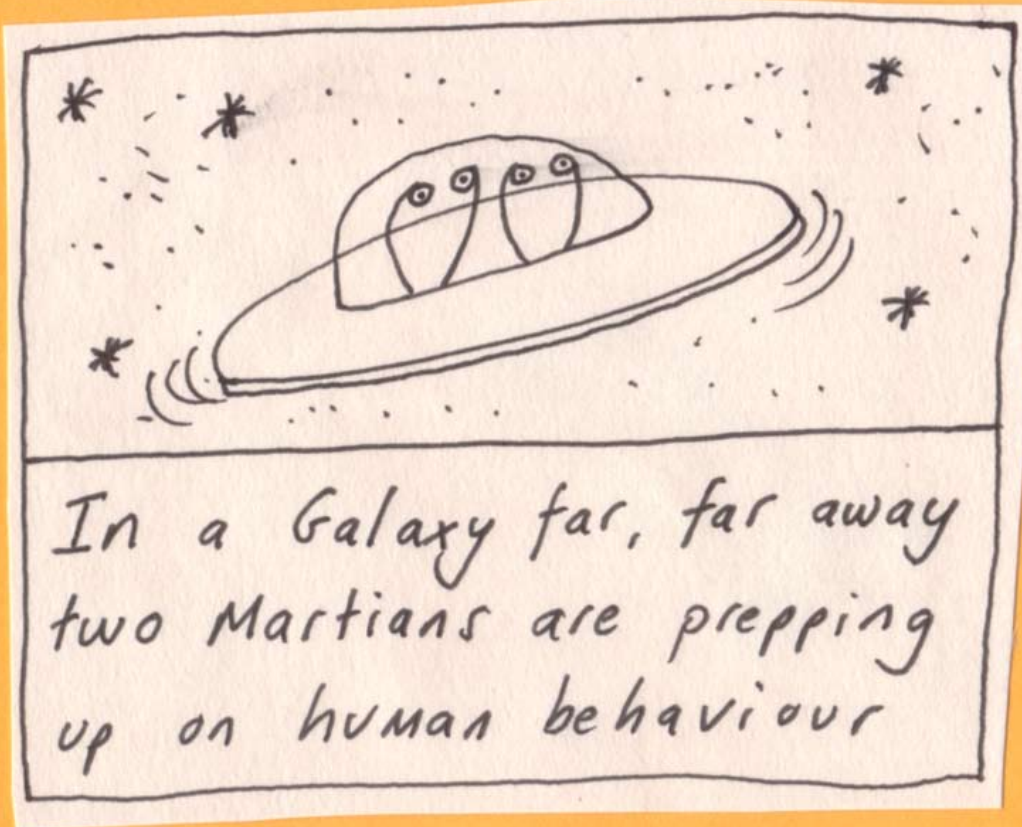 In a Galaxy far, far away
two Martians are prepping
up on human behaviour